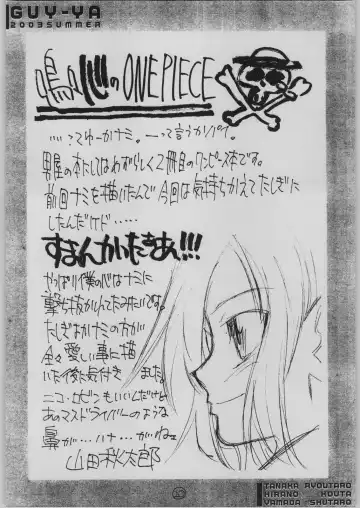 GUY-YA
2003SUMMER
鳴心のONE PIECE
・・・・・?てゆーかナミ。ーって言うかパイ。
男屋の本にしてはめずらしく2冊目のワンピース本です。
前回ナミを描いたんで今回は気持ちかえてたしぎに
したんだケド・・・・・
すまんかったきあ!!!
やっぱり僕の心はナミに
撃ち抜かれてたみたいです。
たしぎよかナミの方が
全々愛しい事に描
いた後に気付き ました。
ニコ・ロビンもいいんだけど
あのマスドライバーのような
鼻が・・・ハナ・・・がねェ
山田秋太郎
TANAKA RYOUTARO
HIRANO KOUTA
YAMADA SHUTARO